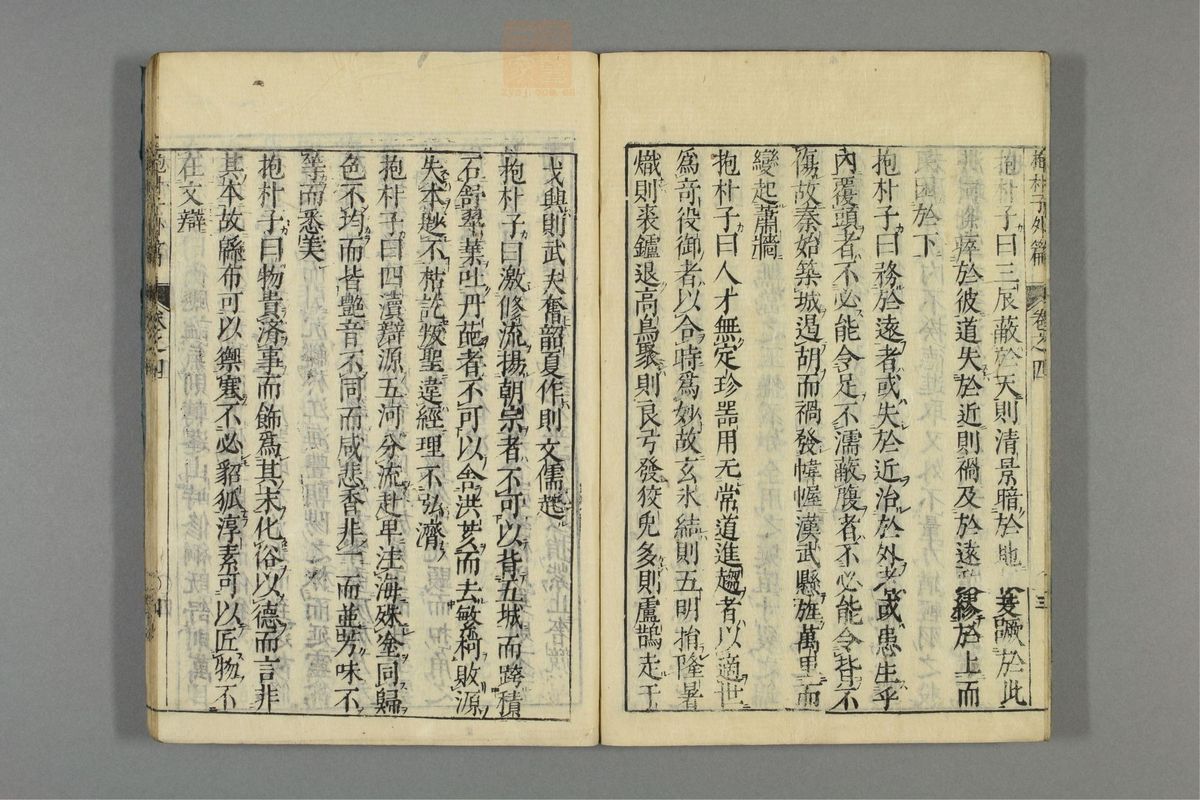 抱朴子外篇 卷之四 三
抱朴子曰三辰蔽於天則清景暗於地
蹶於此
瘁於彼道失於近則禍及於遠 繆於上而
困於下
抱朴子曰務於遠者或失於近治於外者或患生乎
內覆頭者不必能令足不濡蔽腹者不必能令背不
傷故秦始築城遏胡而禍發幃幄漢武懸旌萬里而
變起蕭牆
抱朴子曰人才無定珍器用无常道進趨者以適世
為奇役御者以合時為妙故玄氷結則五明捐隆暑
熾則裘鑪退高鳥聚則良弓發狡兔多則盧鵲走干
戈興則武夫奮韶夏作則文儒起
抱朴子曰激修流揚朝宗者不可以背五城而跨積
石舒翠葉吐丹葩者不可以舍洪荄而去敏柯敗源
失本尟不枯訖叛聖違經理不弘濟
抱朴子曰四瀆辯源五河分流赴卑注海殊塗同歸
色不均而皆艷音不同而咸悲香非一而並芳味不
等而悉美
抱朴子曰物貴済事而飾為其末化俗以德而言非
其本故緜布可以禦寒不必貂狐淳素可以匠物不
在文辯
抱朴子外篇 卷之四 四